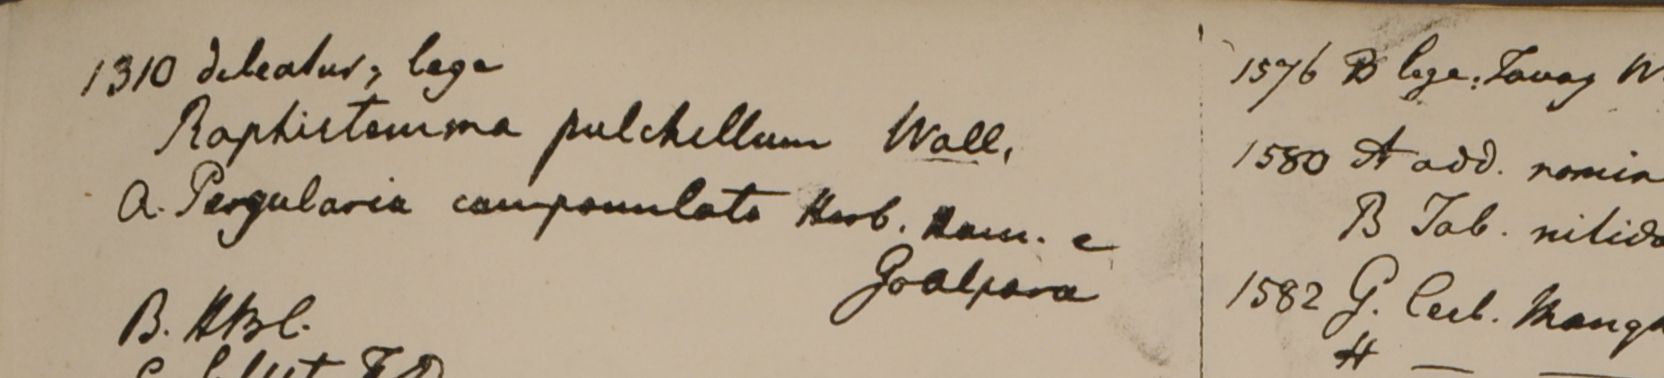 1310 deleatur, lege
Raphistemma pulchellum Wall.
A. Pergularia campanulata Herb. Ham. e
Goalpara
B. HBC.
1576 B lege: Tavoy W
1580 A add. nomin
B Tab. nitida
1582 G. Cerb. Mangh
H —